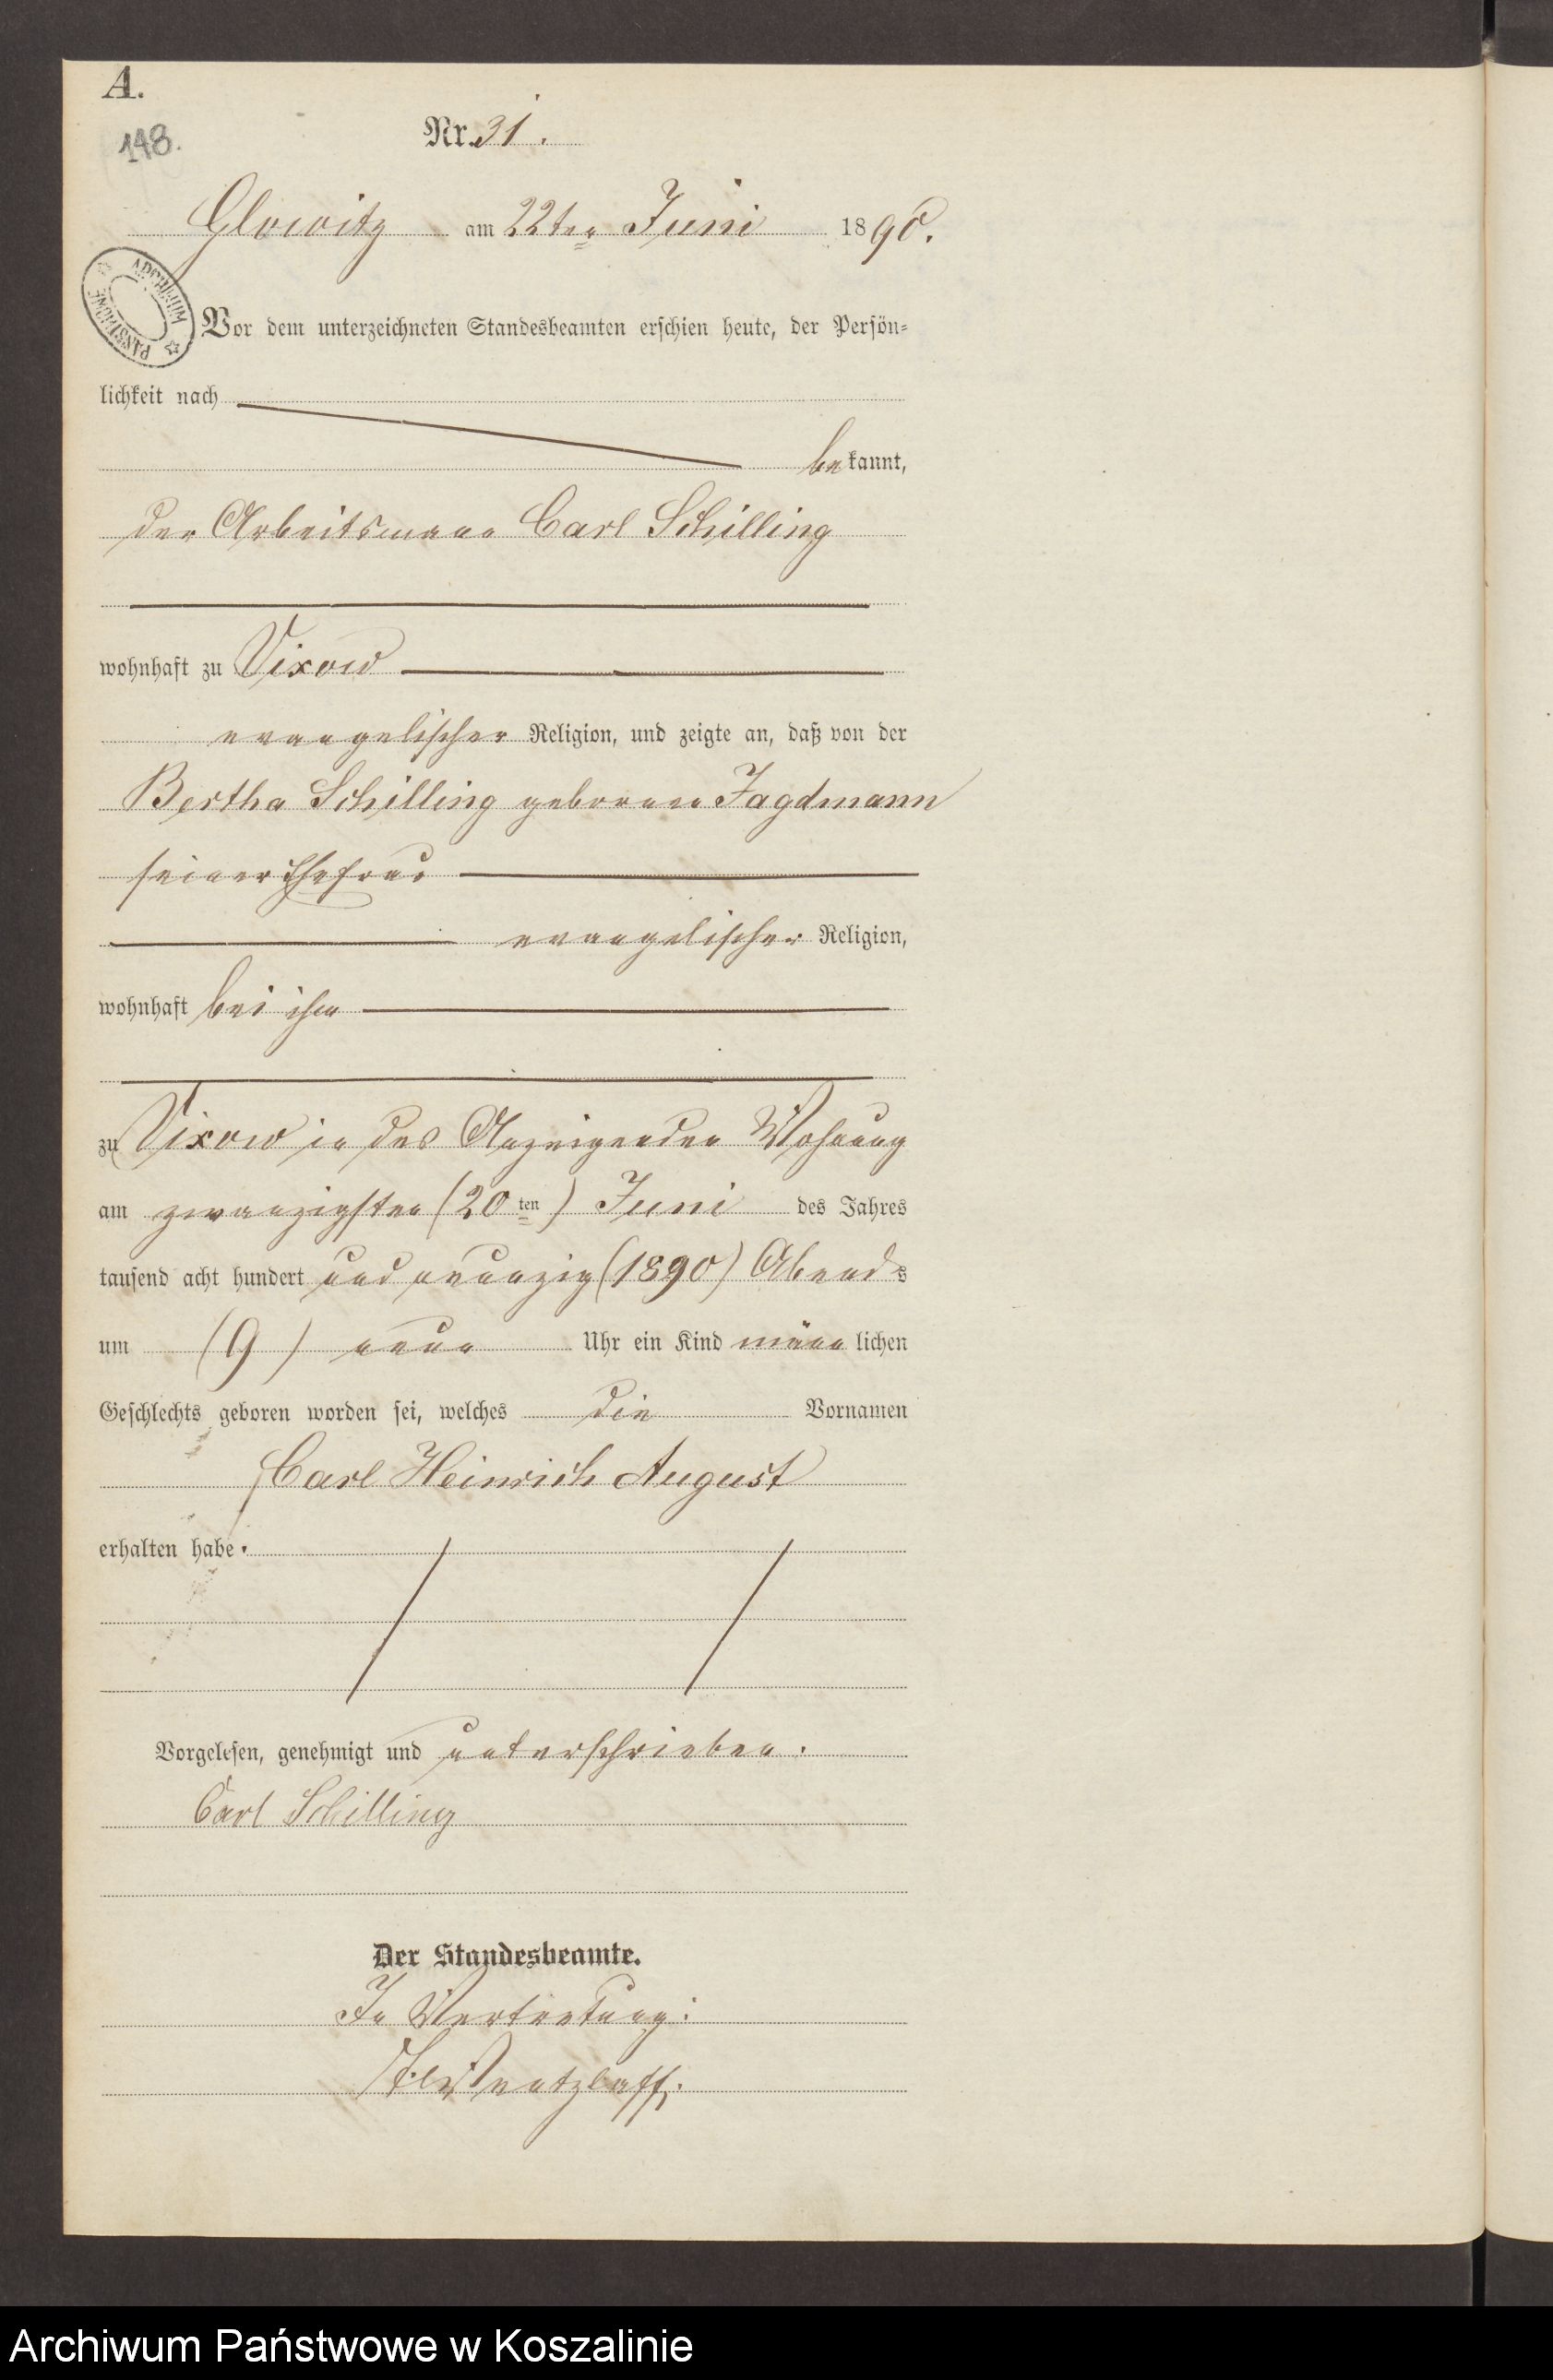 A.
148.
Nr. 31.
Glowitz am 22ten Juni 1890.
ARCHIWUM PAŃSTWOWE
Vor dem unterzeichneten Standesbeamten erschien heute, der Persön=
lichkeit nach
bekannt,
der Arbeitsmann Carl Schilling
wohnhaft zu Vixow
evangelischer Religion, und zeigte an, daß von der
Bertha Schilling geborene Jagdmann
seiner Ehefrau
evangelischer Religion,
wohnhaft bei ihm
zu Vixow in des Anzeigenden Wohnung
am zwanzigsten (20ten) Juni des Jahres
tausend acht hundert und neunzig (1890) Abends
um (9) neun Uhr ein Kind männlichen
Geschlechts geboren worden sei, welches die Vornamen
Carl Heinrich August
erhalten habe.
Vorgelesen, genehmigt und unterschrieben.
Carl Schilling
Der Standesbeamte.
In Vertretung:
Wentzlaff.
Archiwum Państwowe w Koszalinie